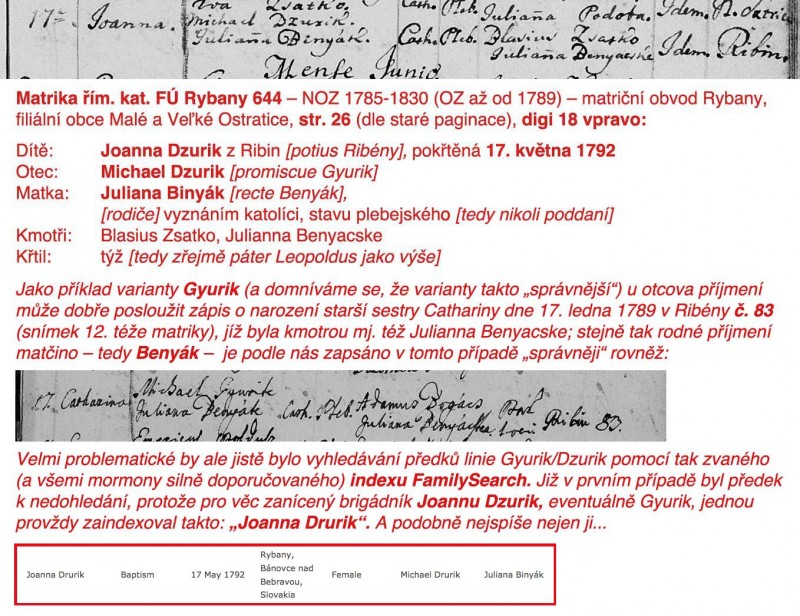 Iva Zsatko.
17ª Joanna. Michael Dzurik. Cath. Pleb. Julianna Podoba. Idem.
Julianna Benyák. Cath. Pleb. Blasius Zsatko Idem. Ribin.
Julianna Benyacske
Mense Junio
Matrika řím. kat. FÚ Rybany 644 – NOZ 1785-1830 (OZ až od 1789) – matriční obvod Rybany,
filiální obce Malé a Veľké Ostratice, str. 26 (dle staré paginace), digi 18 vpravo:
Dítě: Joanna Dzurik z Ribin [potius Ribény], pokřtěná 17. května 1792
Otec: Michael Dzurik [promiscue Gyurik]
Matka: Juliana Binyák [recte Benyák],
[rodiče] vyznáním katolíci, stavu plebejského [tedy nikoli poddaní]
Kmotři: Blasius Zsatko, Julianna Benyacske
Křtil: týž [tedy zřejmě páter Leopoldus jako výše]
Jako příklad varianty Gyurik (a domníváme se, že varianty takto „správnější“) u otcova příjmení
může dobře posloužit zápis o narození starší sestry Cathariny dne 17. ledna 1789 v Ribény č. 83
(snímek 12. téže matriky), jíž byla kmotrou mj. též Julianna Benyacske; stejně tak rodné příjmení
matčino – tedy Benyák – je podle nás zapsáno v tomto případě „správněji“ rovněž:
17. Catharina Michael Gyurik Cath. Pleb. Adamus
Juliana Benyák Juliana Benyacska Ribin 83.
Velmi problematické by ale jistě bylo vyhledávání předků linie Gyurik/Dzurik pomocí tak zvaného
(a všemi mormony silně doporučovaného) indexu FamilySearch. Již v prvním případě byl předek
k nedohledání, protože pro věc zanícený brigádník Joannu Dzurik, eventuálně Gyurik, jednou
provždy zaindexoval takto: „Joanna Drurik“. A podobně nejspíše nejen ji...
Joanna Drurik Baptism 17 May 1792 Rybany,
Bánovce nad
Bebravou,
Slovakia Female Michael Drurik Juliana Binyák